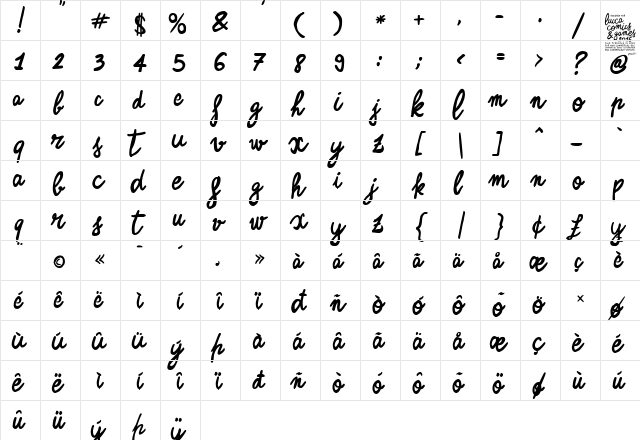 ! " # $ % & ' ( ) * + , - . / lucca comics & games
1 2 3 4 5 6 7 8 9 : ; < = > ? @
a b c d e f g h i j k l m n o p
q r s t u v w x y z [ \ ] ^ _ `
a b c d e f g h i j k l m n o p
q r s t u v w x y z { | } ¢ £ ÿ
© « ¯ ´ . » à á â ã ä å æ ç è
é ê ë ì í î ï đ ñ ò ó ô õ ö × ø
ù ú û ü ý þ à á â ã ä å æ ç è é
ê ë ì í î ï đ ñ ò ó ô õ ö ø ù ú
û ü ý þ ÿ